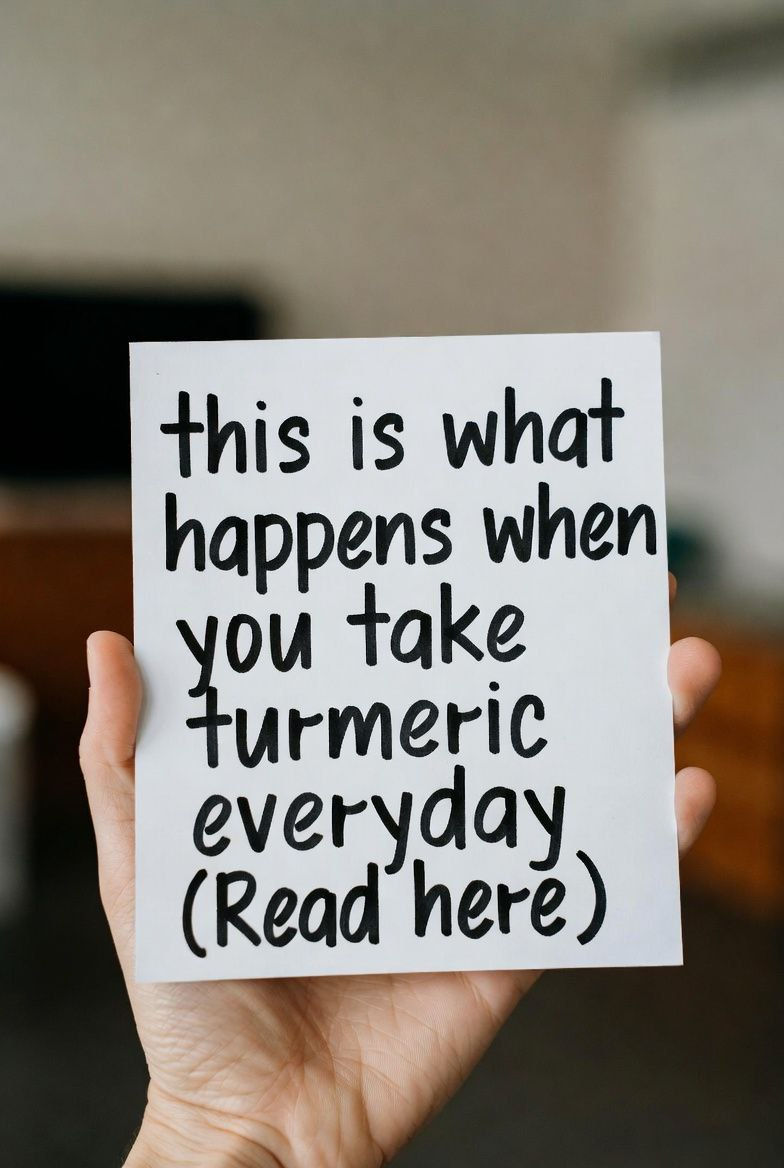 this is what
happens when
you take
turmeric
everyday
(Read here)